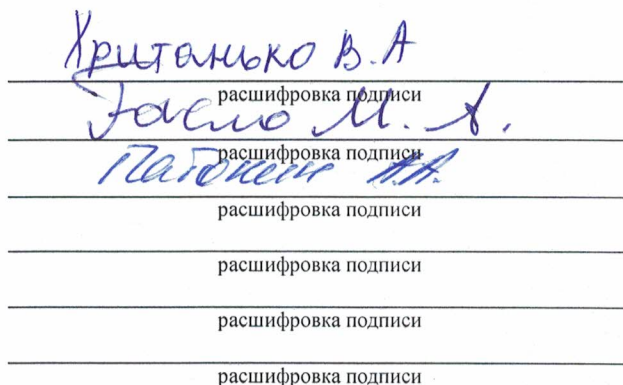 Хританько В.А
расшифровка подписи
М. А.
расшифровка подписи
Патокин А.А.
расшифровка подписи
расшифровка подписи
расшифровка подписи
расшифровка подписи